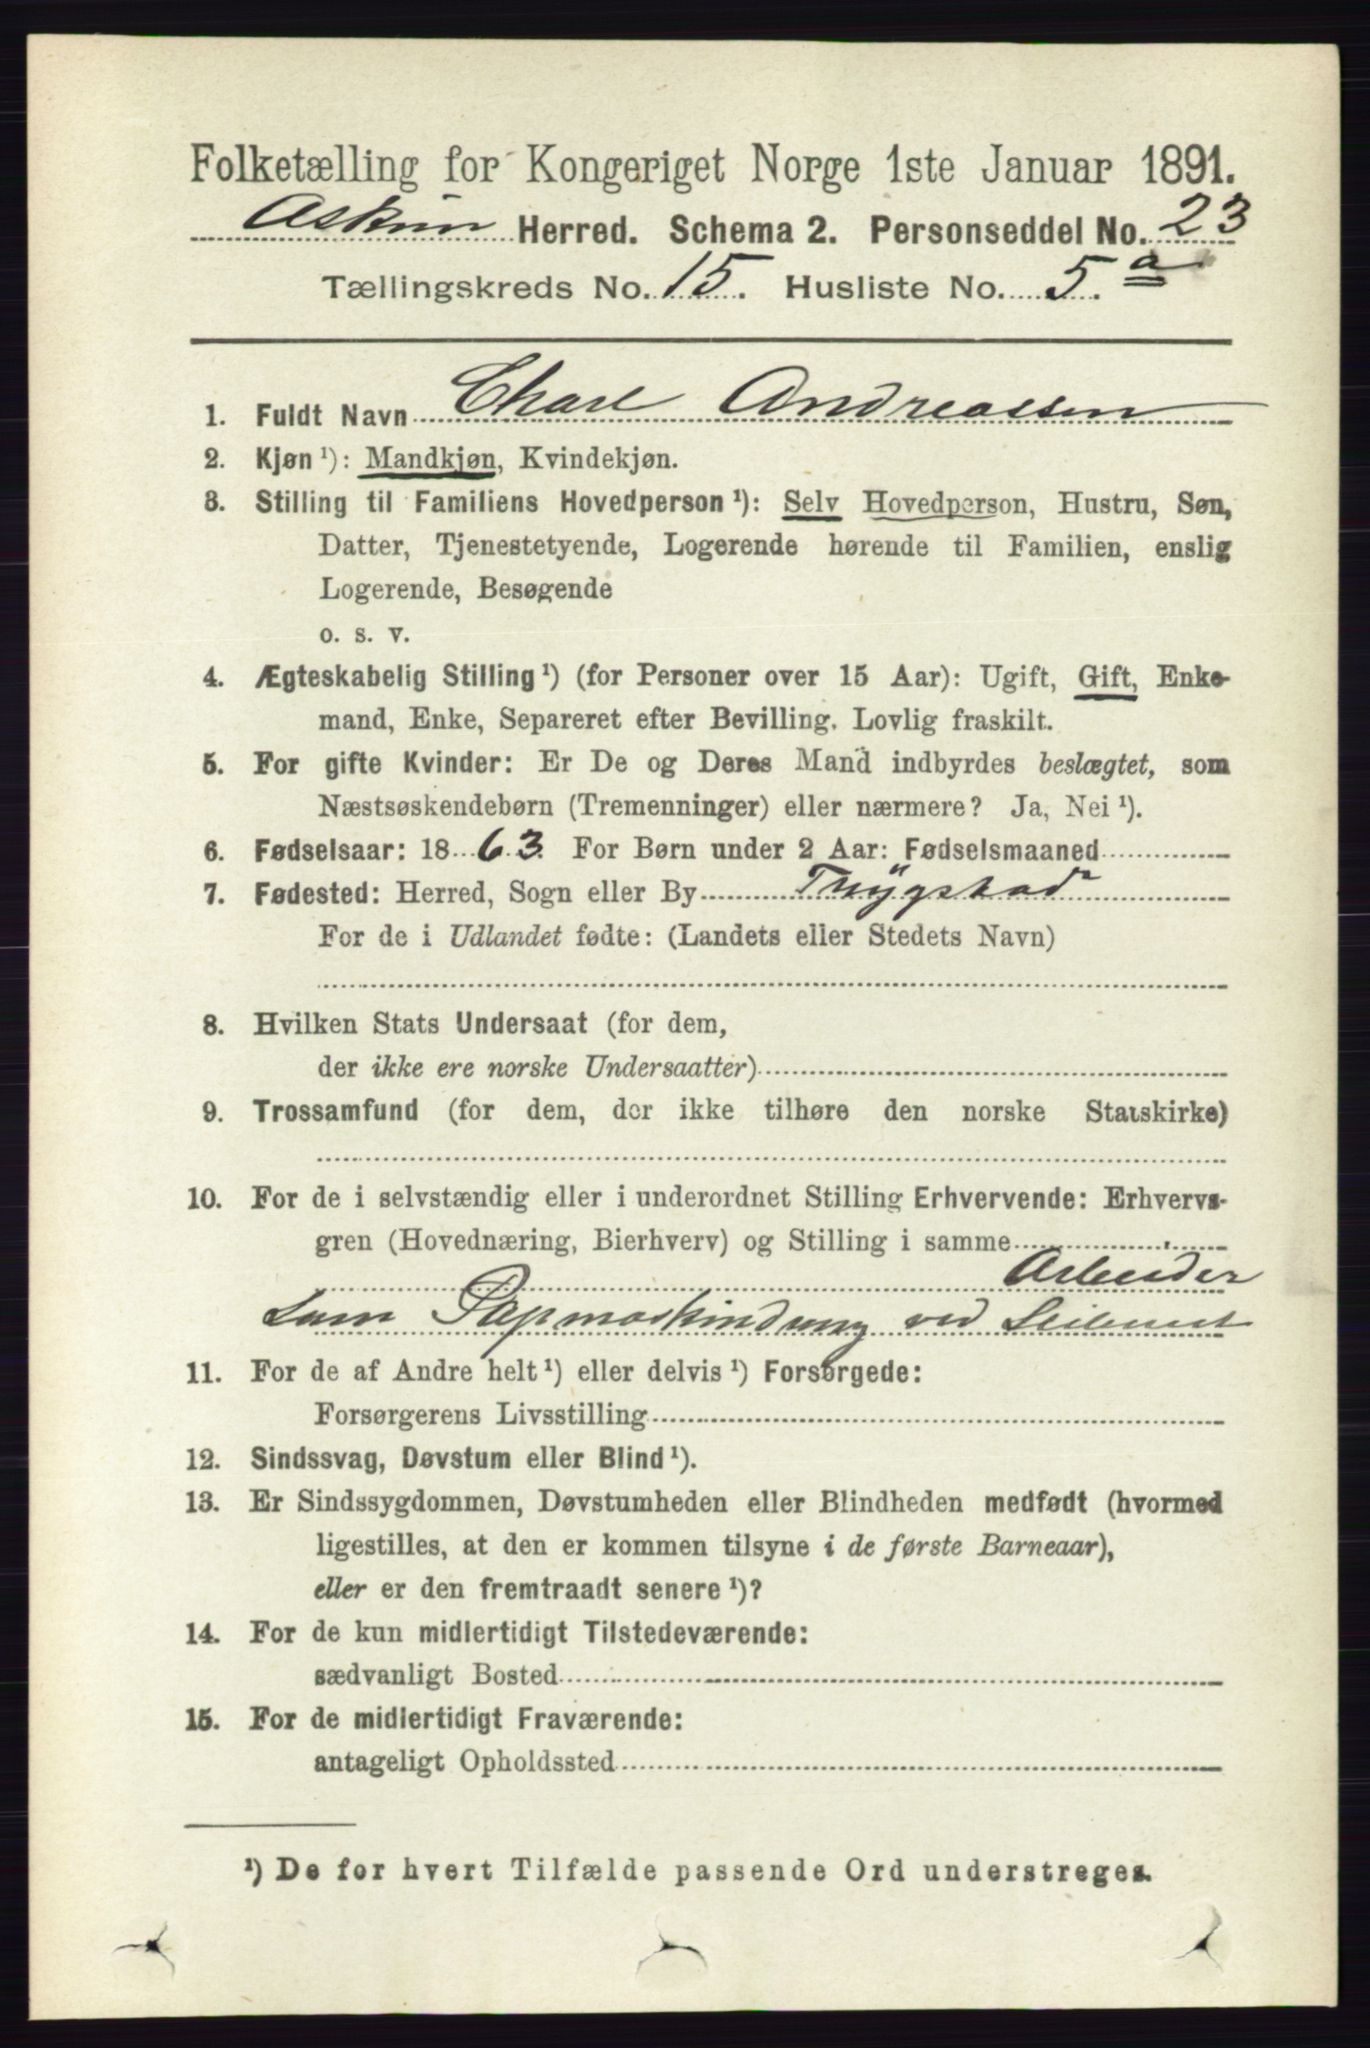 Folketælling for Kongeriget Norge 1ste Januar 1891.
Askim Herred. Schema 2. Personseddel No. 23
Tællingskreds No. 15. Husliste No. 5.a
1. Fuldt Navn Charl Andreassen
2. Kjøn ¹): Mandkjøn, Kvindekjøn.
3. Stilling til Familiens Hovedperson ¹): Selv Hovedperson, Hustru, Søn,
Datter, Tjenestetyende, Logerende hørende til Familien, enslig
Logerende, Besøgende
o. s. v.
4. Ægteskabelig Stilling ¹) (for Personer over 15 Aar): Ugift, Gift, Enke-
mand, Enke, Separeret efter Bevilling. Lovlig fraskilt.
5. For gifte Kvinder: Er De og Deres Mand indbyrdes beslægtet, som
Næstsøskendebørn (Tremenninger) eller nærmere? Ja, Nei ¹).
6. Fødselsaar: 1863. For Børn under 2 Aar: Fødselsmaaned
7. Fødested: Herred, Sogn eller By Thrygstad
For de i Udlandet fødte: (Landets eller Stedets Navn)
8. Hvilken Stats Undersaat (for dem,
der ikke ere norske Undersaatter)
9. Trossamfund (for dem, der ikke tilhøre den norske Statskirke)
10. For de i selvstændig eller i underordnet Stilling Erhvervende: Erhvervs-
gren (Hovednæring, Bierhverv) og Stilling i samme
Arbeider
som Papmaskin ved
11. For de af Andre helt ¹) eller delvis ¹) Forsørgede:
Forsørgerens Livsstilling
12. Sindssvag, Døvstum eller Blind ¹).
13. Er Sindssygdommen, Døvstumheden eller Blindheden medfødt (hvormed
ligestilles, at den er kommen tilsyne i de første Barneaar),
eller er den fremtraadt senere ¹)?
14. For de kun midlertidigt Tilstedeværende:
sædvanligt Bosted
15. For de midlertidigt Fraværende:
antageligt Opholdssted
¹) De for hvert Tilfælde passende Ord understreges.